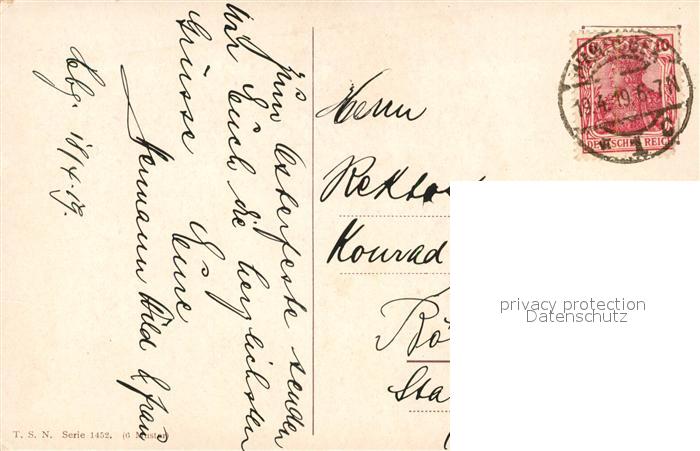 Zum Osterfeste senden
wir Euch die herzlichsten
Grüsse Eure
Hermann Wild & Frau
18/4.19.
Herrn
Konrad
Sta
10 10
DEUTSCHES REICH
19.4.19.6-7N
T. S. N. Serie 1452. (6 Muster)
privacy protection
Datenschutz